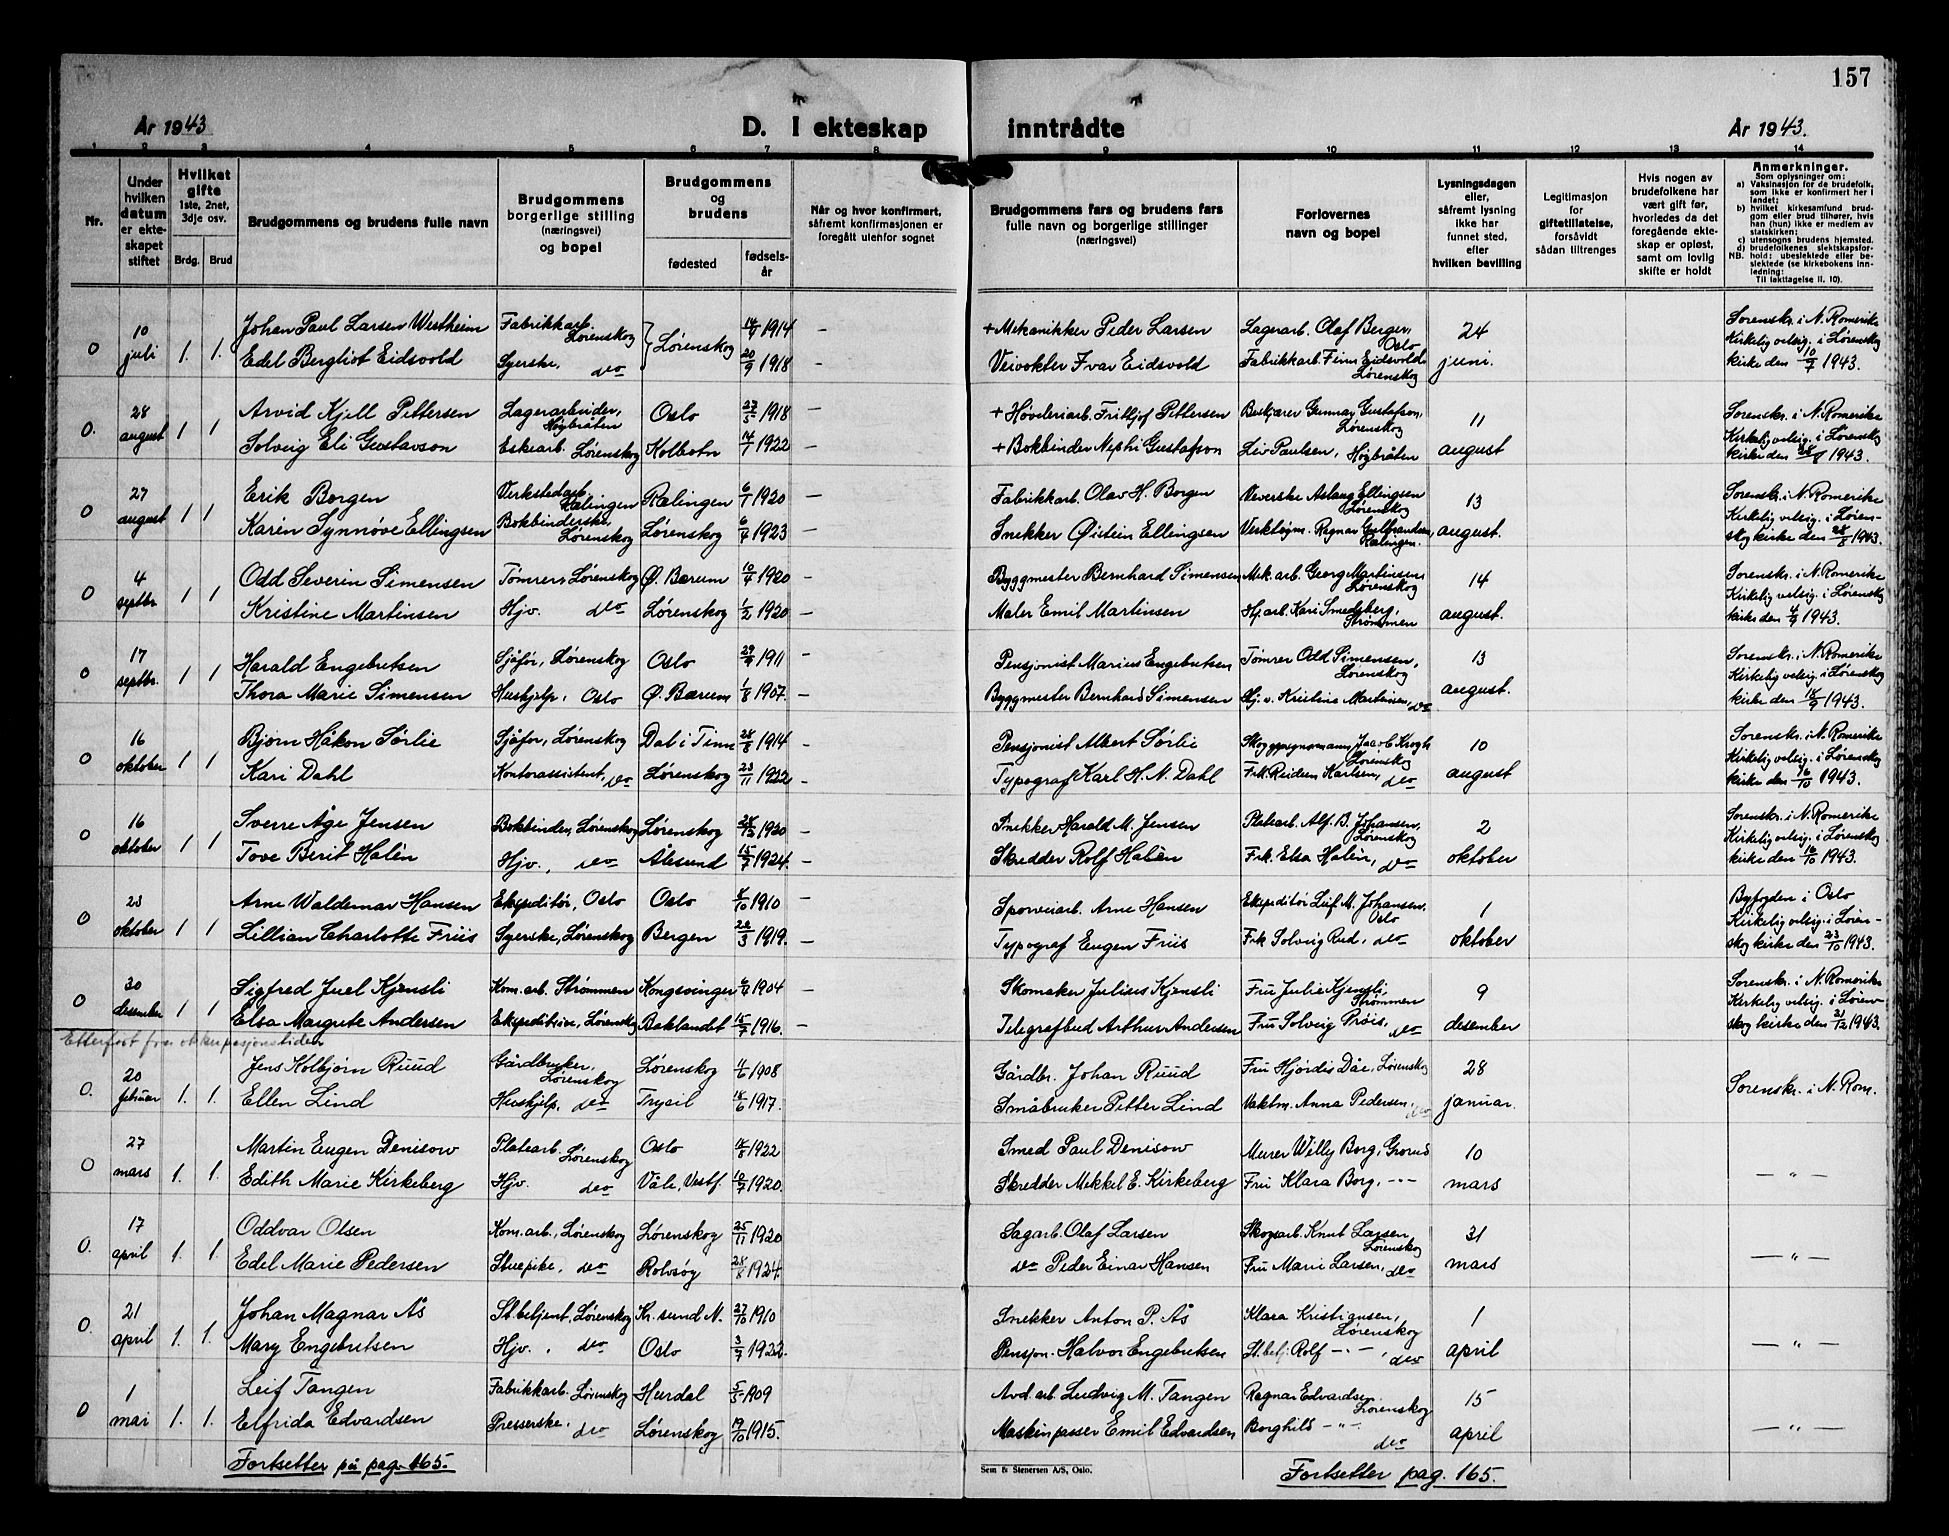 157
År 1943
D. I ekteskap inntrådte
År 1943.
1 2 3 4 5 6 7 8 9 10 11 12 13 14
Nr.
Under hvilken datum er ekteskapet stiftet
Hvilket gifte 1ste, 2net, 3dje osv.
Brdg. Brud
Brudgommens og brudens fulle navn
Brudgommens borgerlige stilling (næringsvei) og bopel
Brudgommens og brudens
fødested
fødselsår
Når og hvor konfirmert, såfremt konfirmasjonen er foregått utenfor sognet
Brudgommens fars og brudens fars fulle navn og borgerlige stillinger (næringsvei)
Forlovernes navn og bopel
Lysningsdagen eller, såfremt lysning ikke har funnet sted, efter hvilken bevilling
Legitimasjon for giftetillatelse, forsåvidt sådan tiltrenges
Hvis nogen av brudefolkene har vært gift før, hvorledes da det foregående ekteskap er opløst, samt om lovlig skifte er holdt
Anmerkninger.
Som oplysninger om:
a) Vaksinasjon for de brudefolk, som ikke er konfirmert her i landet;
b) hvilket kirkesamfund brudgom eller brud tilhører, hvis han (hun) ikke er medlem av statskirken;
c) utensogns brudens hjemsted.
d) brudefolkenes slektskapsforhold: ubeslektede eller beslektede (se kirkebokens innledning:
NB.
Til iakttagelse II. 10).
0 10 juli 1. 1. Johan Paul Larsen Westheim Fabrikkarb. Lørenskog Lørenskog 1914 – + Mekanikker Peder Larsen Lagerarb. Olaf Berger, Oslo 24 juni. Sorenskr. i N. Romerike
Edel Bergliot Eidsvold Syerske, do 20/9 1918 – Veivokter Ivar Eidsvold Fabrikkarb. Finn Eidsvold Lørenskog Kirkelig velsig. i Lørenskog kirke den 10/7 1943.
0. 28 august 1 1 Arvid Kjell Pettersen Lagerarbeider, Høybråten Oslo 23/5 1918 – + Høvleriarb. Frithjof Pettersen Gunnar Gustafson, Lørenskog 11 august Sorenskr. i N. Romerike
Solveig Eli Gustavson Eskearb. Lørenskog Kolbotn 14/7 1922 – + Bokbinder Nephi Gustafson Liv Paulsen, Høybråten Kirkelig velsig. i Lørenskog kirke den 28/8 1943.
0 27 august 1 1 Erik Borgen Verkstedarb. Rælingen Rælingen 6/1 1920 – Fabrikkarb. Olav H. Borgen Veverske Aslaug Ellingsen Lørenskog 13 august. Sorenskr. i N. Romerike
Karin Synnøve Ellingsen Bokbinderske Lørenskog Lørenskog 6/4 1923 – Snekker Øistein Ellingsen Verktøym. Ragnar Gulbrandsen, Rælingen. Kirkelig velsig. i Lørenskog kirke den 28/8 1943.
0 4 septbr. 1 1 Odd Severin Simensen Tømrer, Lørenskog Ø. Bærum 10/4 1920 – Byggmester Bernhard Simensen Mek. arb. Georg Martinsen, Lørenskog 14 august. Sorenskr. i N. Romerike
Kristine Martinsen Hjv. do Lørenskog 1/2 1920 – Maler Emil Martinsen Kari Smedsberg, Strømmen Kirkelig velsig. i Lørenskog kirke den 4/9 1943.
0 17 septbr. 1 1 Harald Engebretsen Sjåfør, Lørenskog Oslo 29/9 1911 – Pensjonist Marius Engebretsen Tømrer Odd Simensen, Lørenskog 13 august. Sorenskr. i N. Romerike
Thora Marie Simensen Hushjelp, Oslo Ø. Bærum 1/8 1907. – Byggmester Bernhard Simensen Hj. v. Kristine Martinsen, do Kirkelig velsig. i Lørenskog kirke den 18/9 1943.
0 16 oktober 1 1 Bjørn Håkon Sørlie Sjåfør, Lørenskog Dal i Tinn 28/8 1914 – Pensjonist Albert Sørlie Jacob Krogh Lørenskog 10 august Sorenskr. i N. Romerike
Kari Dahl Kontorassistent, do Lørenskog 23/11 1922 – Typograf Karl H. N. Dahl Frk. Reidun Karlsen, do Kirkelig velsig. i Lørenskog kirke den 16/10 1943.
0 16 oktober 1 1 Sverre Åge Jensen Bokbinder, Lørenskog Lørenskog 28/12 1920 – Snekker Harald M. Jensen Platearb. Alf. B. Johansen, Lørenskog 2 oktober Sorenskr. i N. Romerike
Tove Berit Halèn Hjv., do Ålesund 15/7 1924. – Skredder Rolf Halèn Frk. Elsa Halèn, do Kirkelig velsig. i Lørenskog kirke den 16/10 1943.
0 23 oktober 1 1 Arne Waldemar Hansen Ekspeditør, Oslo Oslo 1910 – Sporveiarb. Arne Hansen Ekspeditør Leif M. Johansen, Oslo 1 oktober Byfogden i Oslo
Lillian Charlotte Friis Syerske, Lørenskog Bergen 22/3 1919. – Typograf Eugen Friis Frk Solveig Rud, do Kirkelig velsig. i Lørenskog kirke den 23/10 1943.
0 30 desember 1 1 Sigfred Juel Kjensli Kom. arb. Strømmen Kongsvinger 1904 – Skomaker Julius Kjensli Fru Julie Kjensli, Strømmen 9 desember Sorenskr. i N. Romerike
Elsa Margrete Andersen Ekspeditrise, Lørenskog Baklandet 15/7 1916. – Telegrafbud Arthur Andersen Fru Solveig Prøis, do Kirkelig velsig. i Lørenskog kirke den 31/12 1943.
Etterført fra okkupasjonstiden
0. 20 februar 1. 1. Jens Kolbjørn Ruud Gårdbruker, Lørenskog Lørenskog 1908 Gårdbr. Johan Ruud Fru Hjørdis Dåe, Lørenskog 28 januar. Sorenskr. i N. Rom.
Ellen Lind Hushjelp, do Trysil 18/6 1917. Småbruker Petter Lind Vaktm. Anna Pedersen, do
0 27 mars 1. 1. Martin Eugen Denisow Platearb. Lørenskog Oslo 1922 Smed Paul Denisow Murer Willy Borg, Grorud 10 mars – " –
Edith Marie Kirkeberg Hjv. do Våle, Vestf. 10/7 1920. Skredder Mekkel E. Kirkeberg Fru Klara Borg, – " –
0. 17 april 1. 1. Oddvar Olsen Kom. arb., Lørenskog Lørenskog 25/11 1920 Sagarb. Olaf Larsen Skogsarb. Knut Larsen, Lørenskog 31 mars – " –
Edel Marie Pedersen Stuepike, do Rolvsøy 28/8 1924. do Peder Einar Hansen Fru Marie Larsen, do
0. 21 april 1. 1. Johan Magnar Ås St. betjent, Lørenskog Kr. sund N. 27/10 1910 Snekker Anton P. Ås Klara Kristiansen, Lørenskog 1 april – " –
Mary Engebretsen Hjv., do Oslo 3/7 1922. Pensjon. Halvor Engebretsen St. betj. Rolf – " –, do
0 1 mai 1. 1. Leif Tangen Fabrikkarb. Lørenskog Hurdal 5/5 1909 Avd. arb. Ludvig M. Tangen Ragnar Edvardsen Lørenskog 15 april – " –
Elfrida Edvardsen Presserske, do Lørenskog 19/10 1915. Maskinpasser Emil Edvardsen Borghild – " – do
Fortsetter på pag. 165.
Sem & Stenersen A/S, Oslo.
Fortsetter pag. 165.